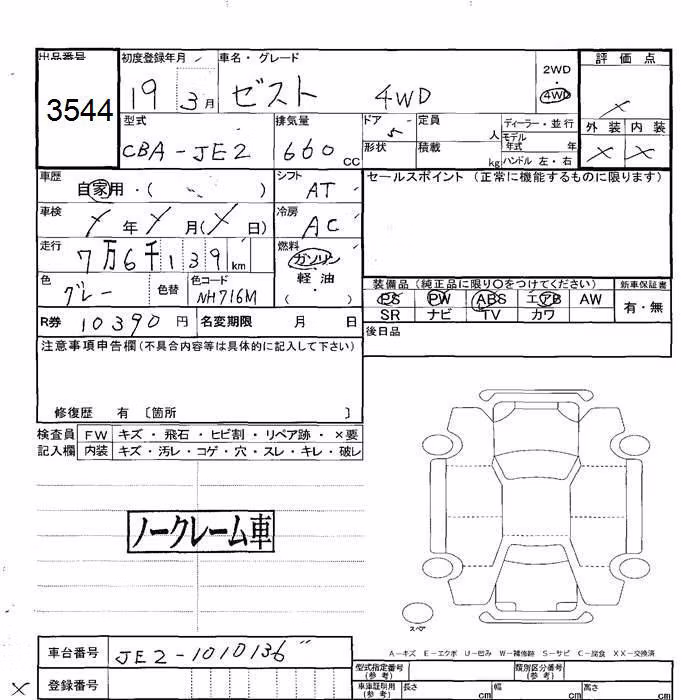 出品番号 初度登録年月 車名・グレード 評価点
3544 19 3月 ゼスト 4WD 2WD・4WD ×
型式 排気量 ドア 定員 ディーラー・並行 外装 内装
CBA-JE2 660 CC 5 人 モデル年式 年 × ×
形状 積載 kg ハンドル 左・右
車歴 自家用・( ) シフト AT セールスポイント(正常に機能するものに限ります)
車検 / 年 / 月(/日) 冷房 AC
走行 7万6千139km 燃料 ガソリン
軽・油
( )
色 グレー 色替 色コード NH716M
装備品(純正品に限り○をつけてください) 新車保証書
PS PW ABS エアB AW 有・無
SR ナビ TV カワ
R券 10390円 名変期限 月 日 後日品
注意事項申告欄(不具合内容等は具体的に記入して下さい)
修復歴 有 〔箇所 〕
検査員 FW キズ・飛石・ヒビ割・リペア跡・×要
記入欄 内装 キズ・汚レ・コゲ・穴・スレ・キレ・破レ
ノークレーム車
スペア
A-キズ E-エクボ U-凹み W-補修跡 S-サビ C-腐食 XX-交換済
車台番号 JE2-1010136
× 登録番号
型式指定番号(参考) 類別区分番号(参考)
車庫証明用(参考) 長さ cm 幅 cm 高さ cm